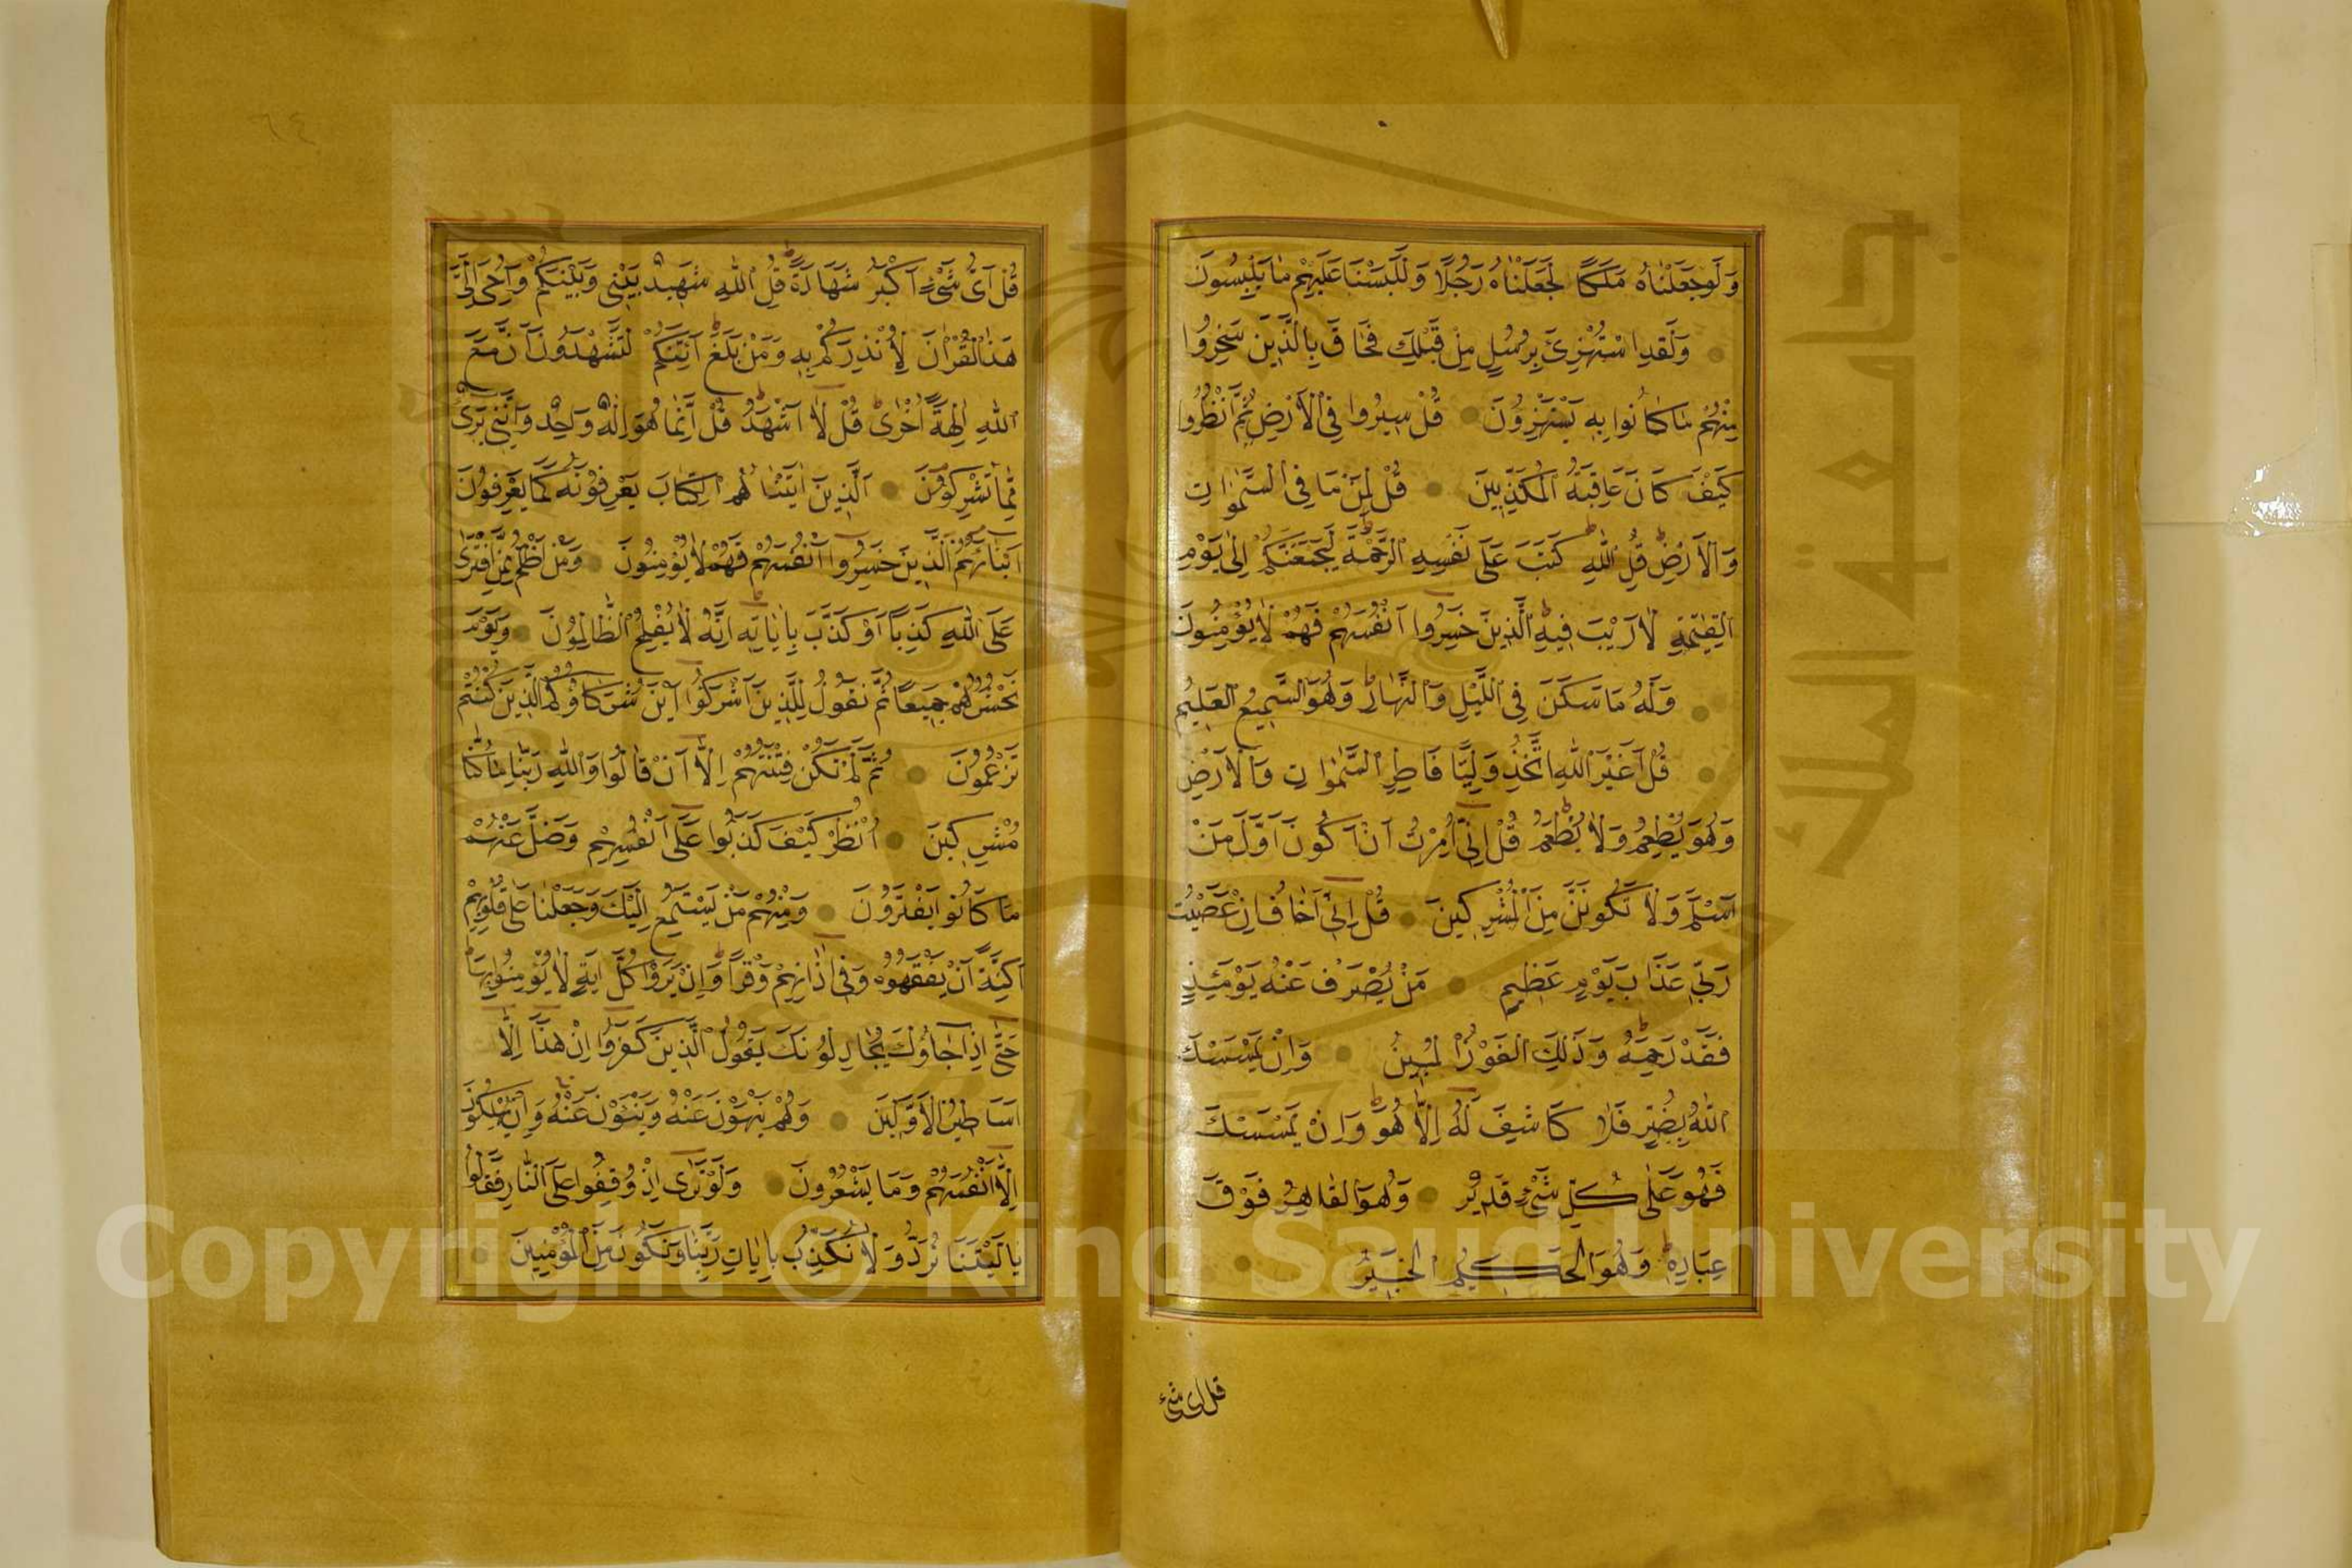 وَلَوْ جَعَلْنَاهُ مَلَكًا لَجَعَلْنَاهُ رَجُلًا وَلَلَبَسْنَا عَلَيْهِمْ مَا يَلْبِسُونَ
وَلَقَدِ اسْتُهْزِئَ بِرُسُلٍ مِنْ قَبْلِكَ فَحَاقَ بِالَّذِينَ سَخِرُوا
مِنْهُمْ مَا كَانُوا بِهِ يَسْتَهْزِؤُنَ قُلْ سِيرُوا فِي الْأَرْضِ ثُمَّ انْظُرُوا
كَيْفَ كَانَ عَاقِبَةُ الْمُكَذِّبِينَ قُلْ لِمَنْ مَا فِي السَّمٰوَاتِ
وَالْأَرْضِ قُلْ لِلّٰهِ كَتَبَ عَلَى نَفْسِهِ الرَّحْمَةَ لَيَجْمَعَنَّكُمْ إِلٰى يَوْمِ
الْقِيٰمَةِ لَا رَيْبَ فِيهِ الَّذِينَ خَسِرُوا أَنْفُسَهُمْ فَهُمْ لَا يُؤْمِنُونَ
وَلَهُ مَا سَكَنَ فِي اللَّيْلِ وَالنَّهَارِ وَهُوَ السَّمِيعُ الْعَلِيمُ
قُلْ أَغَيْرَ اللّٰهِ أَتَّخِذُ وَلِيًّا فَاطِرِ السَّمٰوَاتِ وَالْأَرْضِ
وَهُوَ يُطْعِمُ وَلَا يُطْعَمُ قُلْ إِنِّي أُمِرْتُ أَنْ أَكُونَ أَوَّلَ مَنْ
أَسْلَمَ وَلَا تَكُونَنَّ مِنَ الْمُشْرِكِينَ قُلْ إِنِّي أَخَافُ إِنْ عَصَيْتُ
رَبِّي عَذَابَ يَوْمٍ عَظِيمٍ مَنْ يُصْرَفْ عَنْهُ يَوْمَئِذٍ
فَقَدْ رَحِمَهُ وَذٰلِكَ الْفَوْزُ الْمُبِينُ وَإِنْ يَمْسَسْكَ
اللّٰهُ بِضُرٍّ فَلَا كَاشِفَ لَهُ إِلَّا هُوَ وَإِنْ يَمْسَسْكَ
فَهُوَ عَلٰى كُلِّ شَيْءٍ قَدِيرٌ وَهُوَ الْقَاهِرُ فَوْقَ
عِبَادِهِ وَهُوَ الْحَكِيمُ الْخَبِيرُ
قل اى شئ
٦٤
قُلْ أَيُّ شَيْءٍ أَكْبَرُ شَهَادَةً قُلِ اللّٰهِ شَهِيدٌ بَيْنِي وَبَيْنَكُمْ وَأُوحِيَ إِلَيَّ
هَذَا الْقُرْاٰنُ لِأُنْذِرَكُمْ بِهِ وَمَنْ بَلَغَ أَئِنَّكُمْ لَتَشْهَدُونَ أَنَّ مَعَ
اللّٰهِ اٰلِهَةً أُخْرٰى قُلْ لَا أَشْهَدُ قُلْ إِنَّمَا هُوَ إِلٰهٌ وَاحِدٌ وَإِنَّنِي بَرِيءٌ
مِمَّا تُشْرِكُونَ الَّذِينَ اٰتَيْنَاهُمُ الْكِتَابَ يَعْرِفُونَهُ كَمَا يَعْرِفُونَ
أَبْنَاءَهُمُ الَّذِينَ خَسِرُوا أَنْفُسَهُمْ فَهُمْ لَا يُؤْمِنُونَ وَمَنْ أَظْلَمُ مِمَّنِ افْتَرٰى
عَلَى اللّٰهِ كَذِبًا أَوْ كَذَّبَ بِاٰيَاتِهِ إِنَّهُ لَا يُفْلِحُ الظَّالِمُونَ وَيَوْمَ
نَحْشُرُهُمْ جَمِيعًا ثُمَّ نَقُولُ لِلَّذِينَ أَشْرَكُوا أَيْنَ شُرَكَاؤُكُمُ الَّذِينَ كُنْتُمْ
تَزْعُمُونَ ثُمَّ لَمْ تَكُنْ فِتْنَتُهُمْ إِلَّا أَنْ قَالُوا وَاللّٰهِ رَبِّنَا مَا كُنَّا
مُشْرِكِينَ أُنْظُرْ كَيْفَ كَذَبُوا عَلٰى أَنْفُسِهِمْ وَضَلَّ عَنْهُمْ
مَا كَانُوا يَفْتَرُونَ وَمِنْهُمْ مَنْ يَسْتَمِعُ إِلَيْكَ وَجَعَلْنَا عَلٰى قُلُوبِهِمْ
أَكِنَّةً أَنْ يَفْقَهُوهُ وَفِي اٰذَانِهِمْ وَقْرًا وَإِنْ يَرَوْا كُلَّ اٰيَةٍ لَا يُؤْمِنُوا بِهَا
حَتَّى إِذَا جَاؤُكَ يُجَادِلُونَكَ يَقُولُ الَّذِينَ كَفَرُوا إِنْ هٰذَا إِلَّا
أَسَاطِيرُ الْأَوَّلِينَ وَهُمْ يَنْهَوْنَ عَنْهُ وَيَنْئَوْنَ عَنْهُ وَإِنْ يُهْلِكُونَ
إِلَّا أَنْفُسَهُمْ وَمَا يَشْعُرُونَ وَلَوْ تَرٰى إِذْ وُقِفُوا عَلَى النَّارِ فَقَالُوا
يَا لَيْتَنَا نُرَدُّ وَلَا نُكَذِّبُ بِاٰيَاتِ رَبِّنَا وَنَكُونُ مِنَ الْمُؤْمِنِينَ
Copyright © King Saud University
جامعة الملك سعود
1957